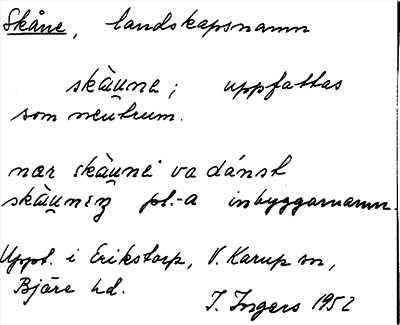 Skåne, landskapsnamn
skäu̯nə; uppfattas
som neutrum.
nær skäu̯nə va dánst
skäu̯nıŋ pl.-a inbyggarnamn.
Uppt. i Erikstorp, V. Karup sn,
Bjäre hd.
I. Ingers 1952